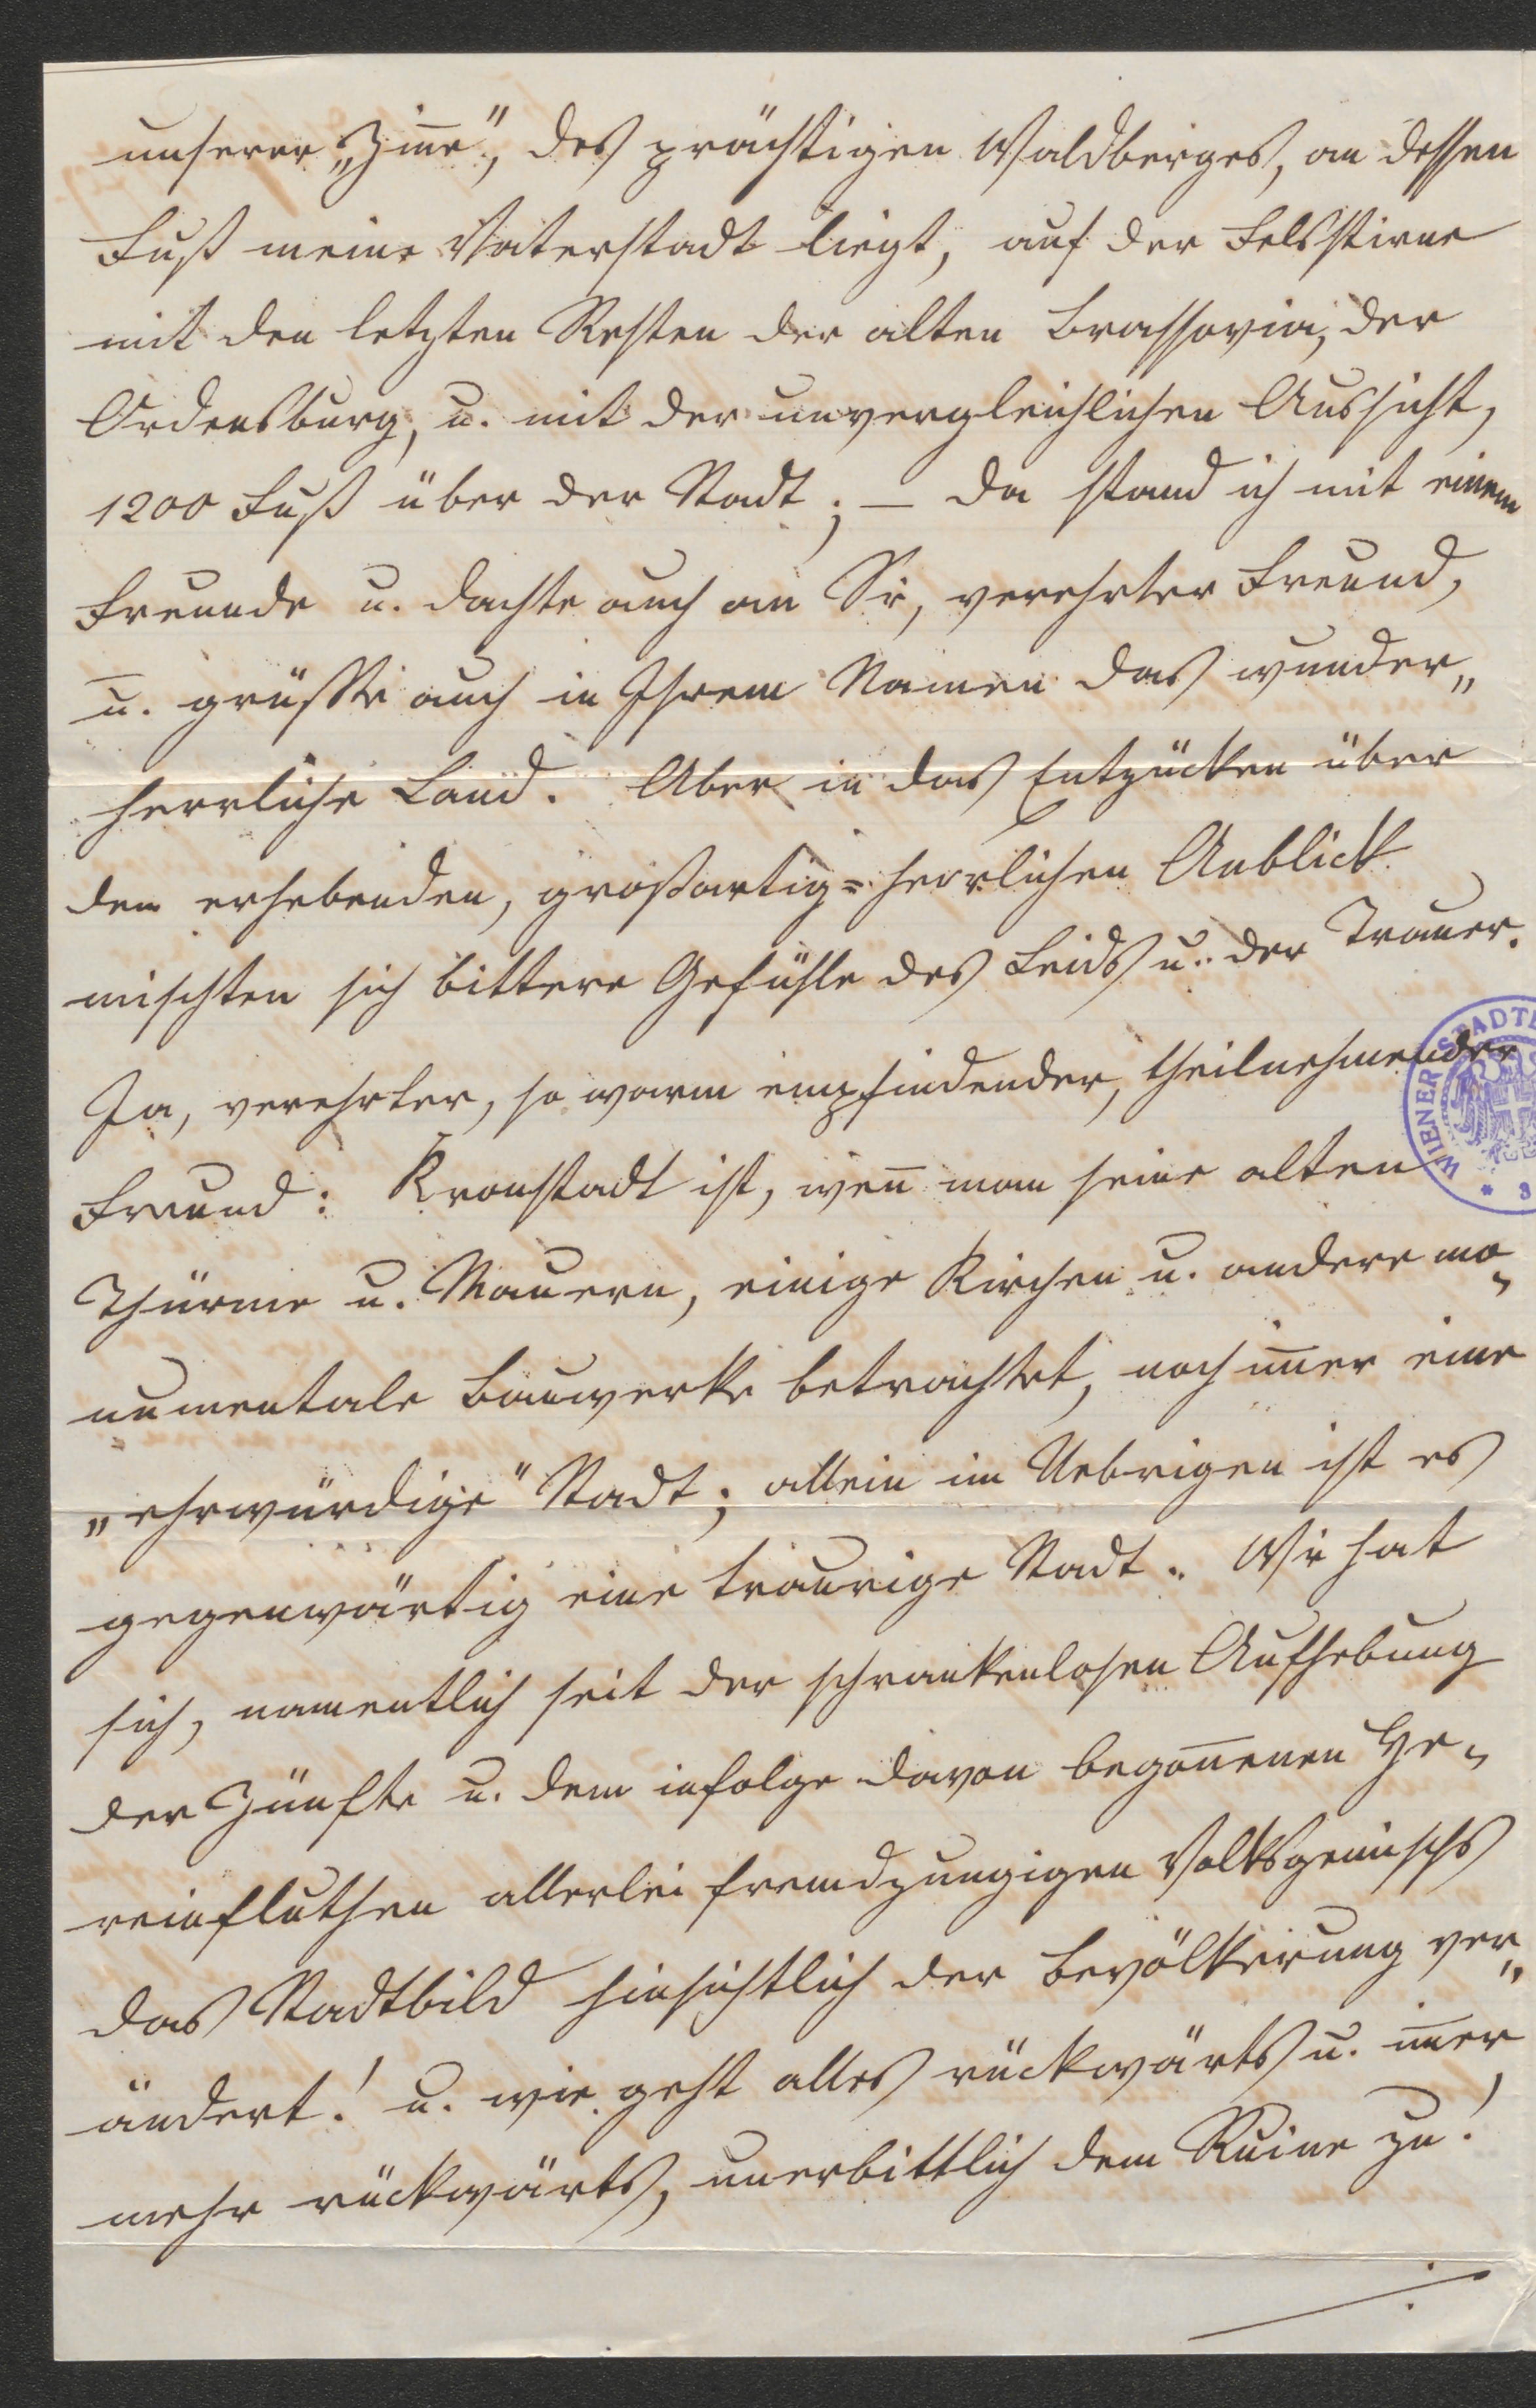 unserer „Zin̅e", des prächtigen Waldberges, an dessen
Fuß meine Vaterstadt liegt, auf der Felsstirne
mit den letzten Resten der alten Brassovia, der
Ordensburg, u. mit der unvergleichlichen Aussicht,
1200 Fuß über der Stadt; — da stand ich mit einem
Freunde u. dachte auch an Sie, verehrter Freund,
u. grüßte auch in Ihrem Namen das wunder„
herrliche Land. Aber in das Entzücken über
den erhebenden, großartig=herrlichen Anblick
mischten sich bittere Gefühle des Leids u. der Trauer.
Ja, verehrter, so warm empfindender, theilnehmender
Freund: Kronstadt ist, wen̅ man seine alten
Thürme u. Mauern, einige Kirchen u. andere mo„
numentale Bauwerke betrachtet, noch im̅er eine
„ehrwürdige" Stadt; allein im Uebrigen ist es
gegenwärtig eine traurige Stadt. Wie hat
sich, namentlich seit der schrankenlosen Aufhebung
der Zünfte u. dem infolge davon begon̅enen He„
reinfluthen allerlei fremdzungigen Volksgemischs
das Stadtbild hinsichtlich der Bevölkerung ver„
ändert! u. wie geht alles rückwärts u. im̅er
mehr rückwärts, unerbittlich dem Ruine zu!
./.
WIENER STADT